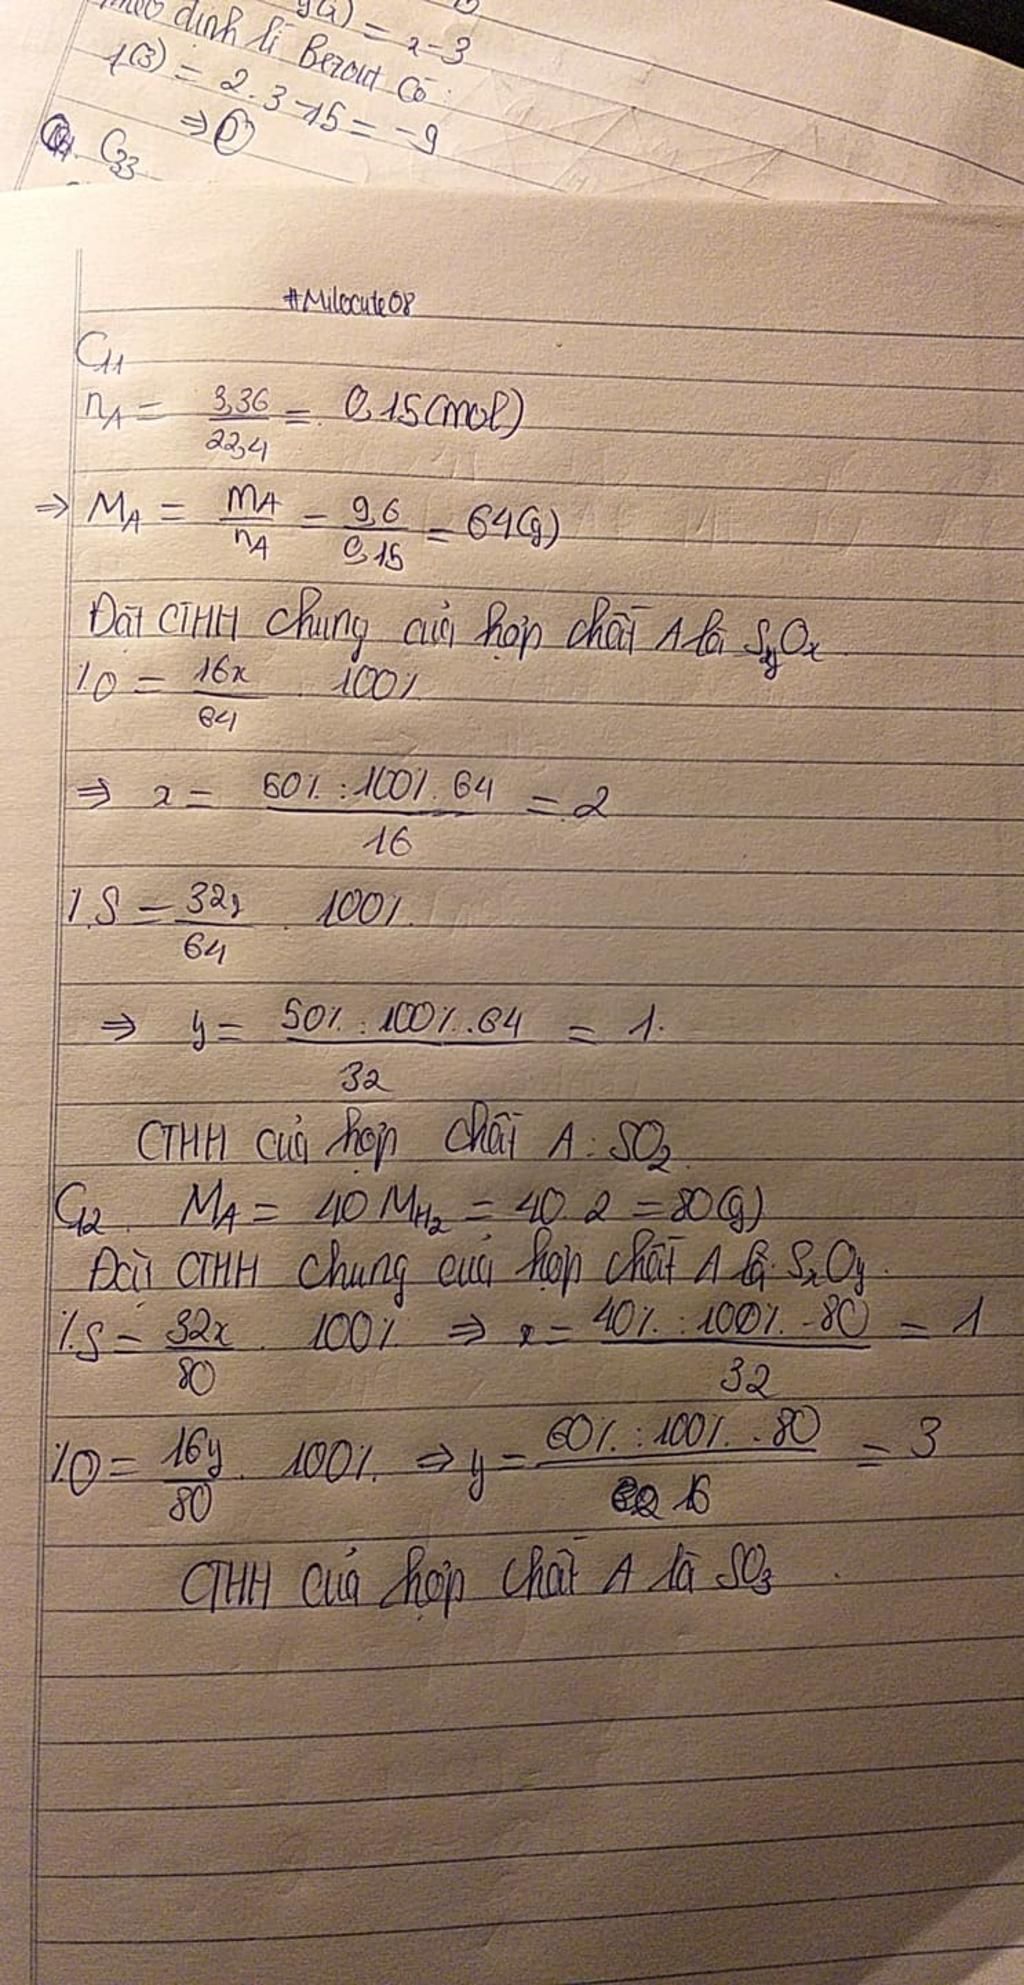 g(x) = x-3
theo định lí Bezout có:
f(3) = 2.3-15 = -9
⇒ D
C33
#Milocute08
C11
nA = 3,36/22,4 = 0,15(mol)
⇒ MA = mA/nA = 9,6/0,15 = 64(g)
Đặt CTHH chung của hợp chất A là SyOx
%O = 16x/64 . 100%
⇒ x = 50% : 100% . 64/16 = 2
%S = 32y/64 . 100%
⇒ y = 50% : 100% . 64/32 = 1.
CTHH của hợp chất A : SO2
C12. MA = 40 MH2 = 40.2 = 80(g)
Đặt CTHH chung của hợp chất A là SxOy.
%S = 32x/80 . 100% ⇒ x = 40% : 100% . 80/32 = 1
%O = 16y/80 . 100% ⇒ y = 60% : 100% . 80/16 = 3
CTHH của hợp chất A là SO3